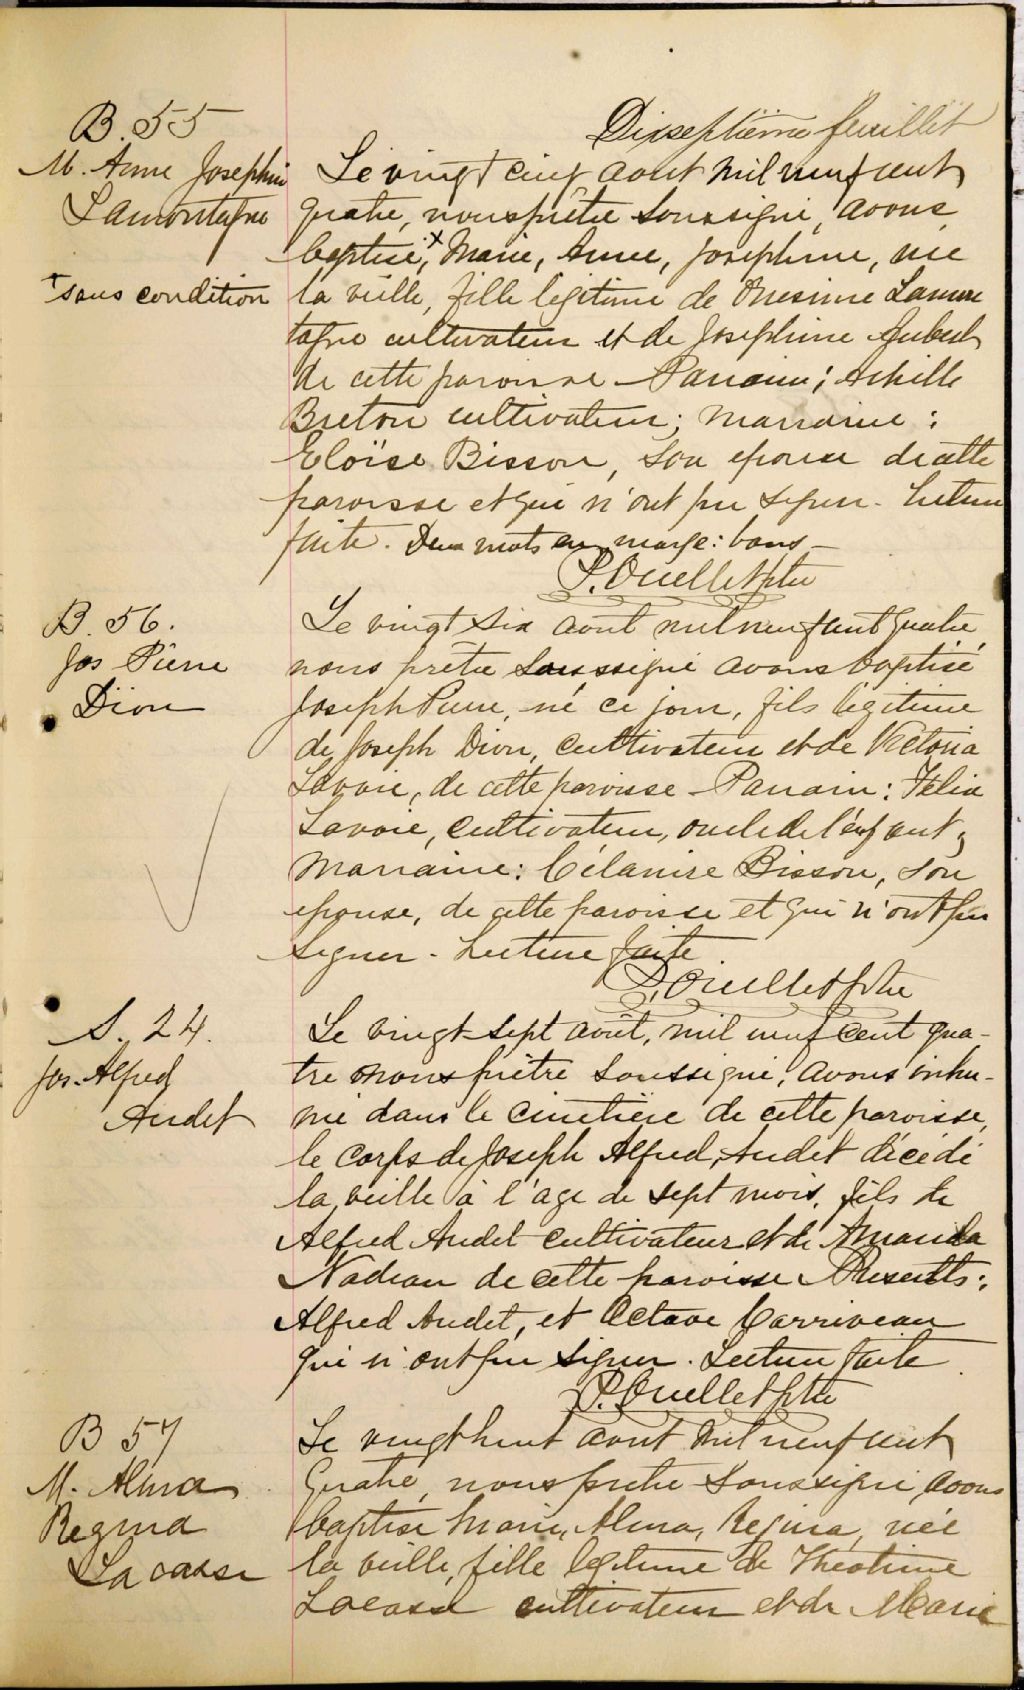 Dixseptième feuillet
B. 55
M. Anne Josephine
Lamontagne
+ sous condition
Le vingt cinq aout mil neuf cent
quatre, nous prêtre soussigné, avons
baptisé,x Marie, Anne, Josephine, née
la veille, fille légitime de Onesime Lamon
tagne cultivateur et de Josephine
de cette paroisse - Parrain; Achille
Breton cultivateur; marraine:
Eloïse Bisson, son epouse de cette
paroisse et qui n'ont pu signer. Lecture
faite. Deux mots en marge: bons -
P. Ouellet ptre
B. 56.
Jos Pierre
Dion
Le vingt six aout mil neuf cent quatre,
nous prêtre soussigné avons baptisé
Joseph Pierre, né ce jour, fils légitime
de Joseph Dion, cultivateur et de Victoria
Lavoie, de cette paroisse - Parrain: Félix
Lavoie, cultivateur, oncle de l'enfant,
Marraine: Célanire Bisson, son
epouse, de cette paroisse et qui n'ont pu
signer - Lecture faite
P. Ouellet ptre
S. 24.
Jos. Alfred
Audet
Le vingt-sept août, mil neuf cent qua-
tre nous prêtre soussigné, avons inhu-
mé dans le cimetière de cette paroisse,
le corps de Joseph Alfred, Audet décédé
la veille à l'age de sept mois, fils de
Alfred Audet cultivateur et de Amanda
Nadeau de cette paroisse Présents:
Alfred Audet, et Octave Carriveau
qui n'ont pu signer. Lecture faite
P. Ouellet ptre
B 57
M. Alma
Regina
Lacasse
Le vingt huit aout mil neuf cent
quatre, nous prêtre soussigné, avons
baptisé Marie, Alma, Regina, née
la veille, fille légitime de Théotime
Lacasse cultivateur et de Marie